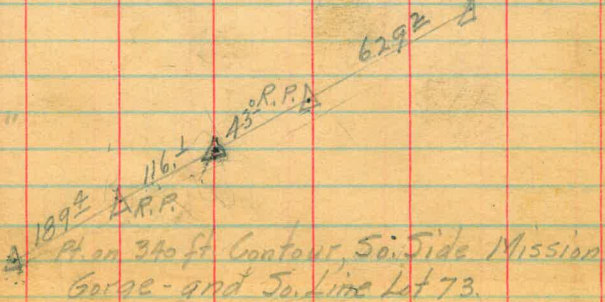 629²
43⁰ R.P.
116.¹
R.P.
189⁴
Pt. on 340 ft Contour, So. Side Mission
Gorge - and So. Line Lot 73.